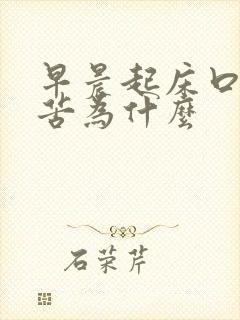 早晨起床口
苦為什麼
石荣芹